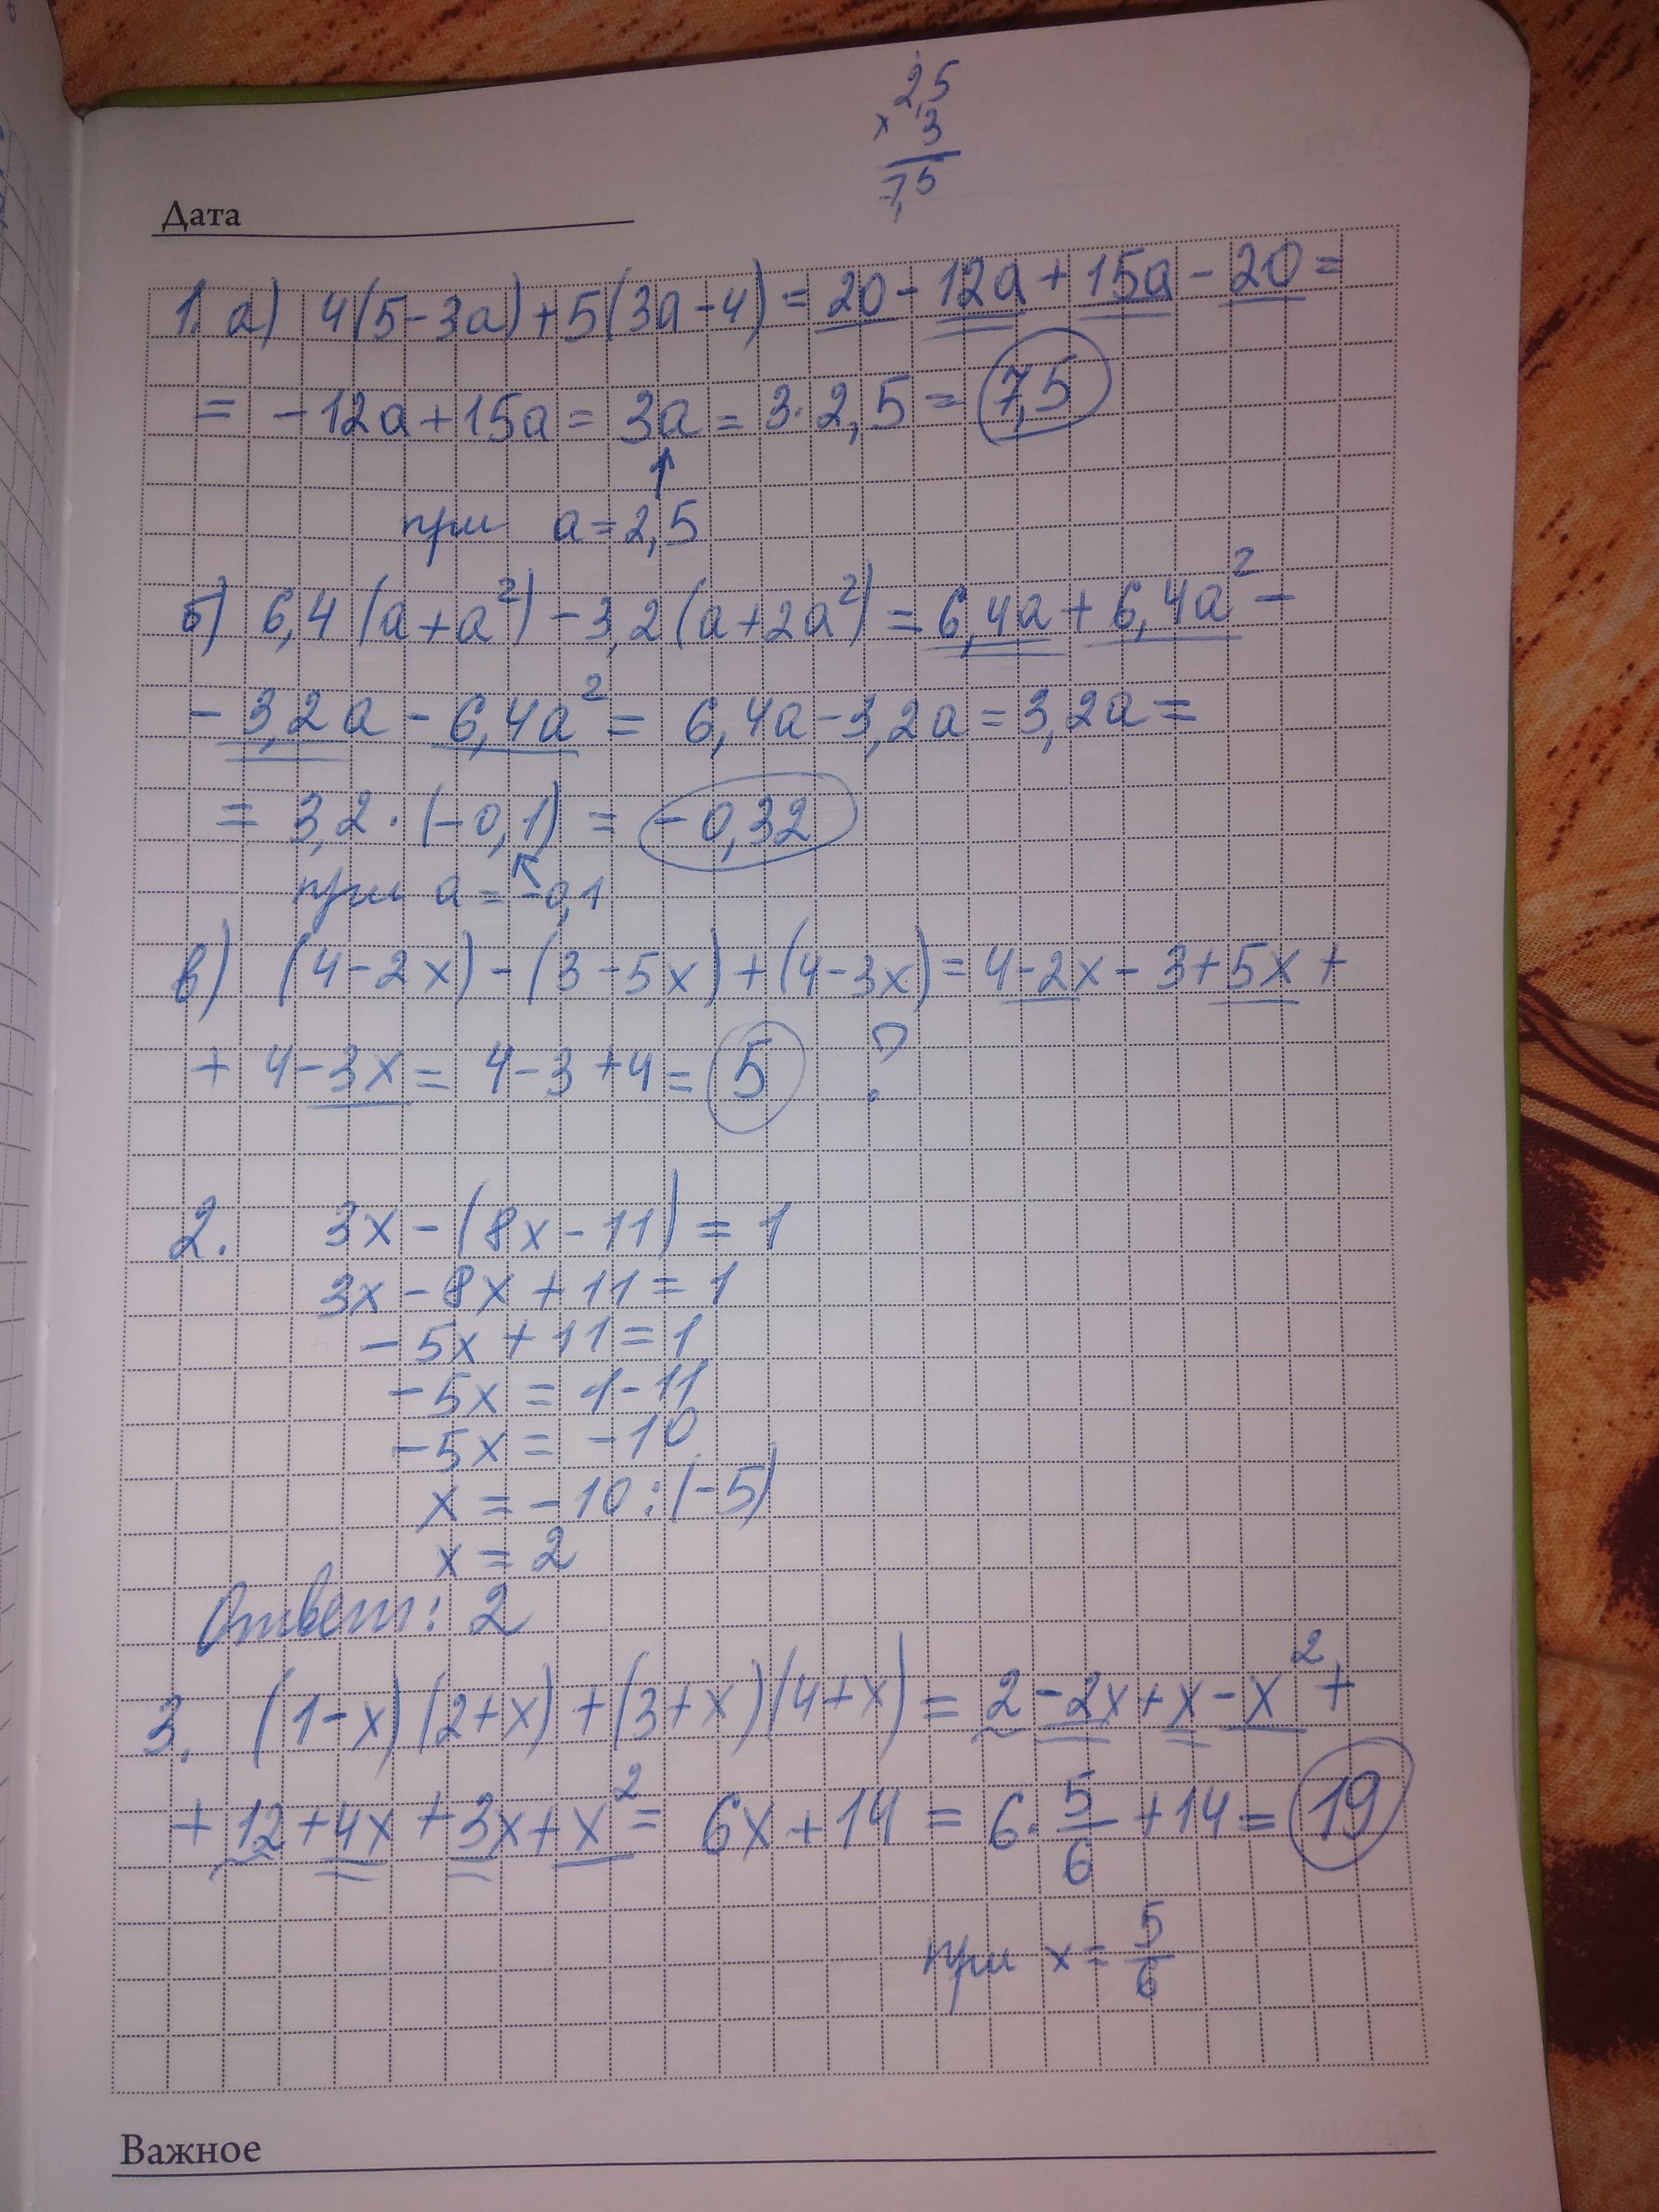 2,5
× 3
7,5
Дата
1. а) 4(5-3a)+5(3a-4)=20-12a+15a-20=
= -12a+15a=3a=3·2,5=7,5
↑
при a=2,5
б) 6,4(a+a²)-3,2(a+2a²)=6,4a+6,4a²-
-3,2a-6,4a²=6,4a-3,2a=3,2a=
=3,2·(-0,1)=-0,32
при a=-0,1
в) (4-2x)-(3-5x)+(4-3x)=4-2x-3+5x+
+4-3x=4-3+4=5 ?
2. 3x-(8x-11)=1
3x-8x+11=1
-5x+11=1
-5x=1-11
-5x=-10
x=-10:(-5)
x=2
Ответ: 2
3. (1-x)(2+x)+(3+x)(4+x)=2-2x+x-x²+
+12+4x+3x+x²=6x+14=6·5/6+14=19
при x=5/6
Важное